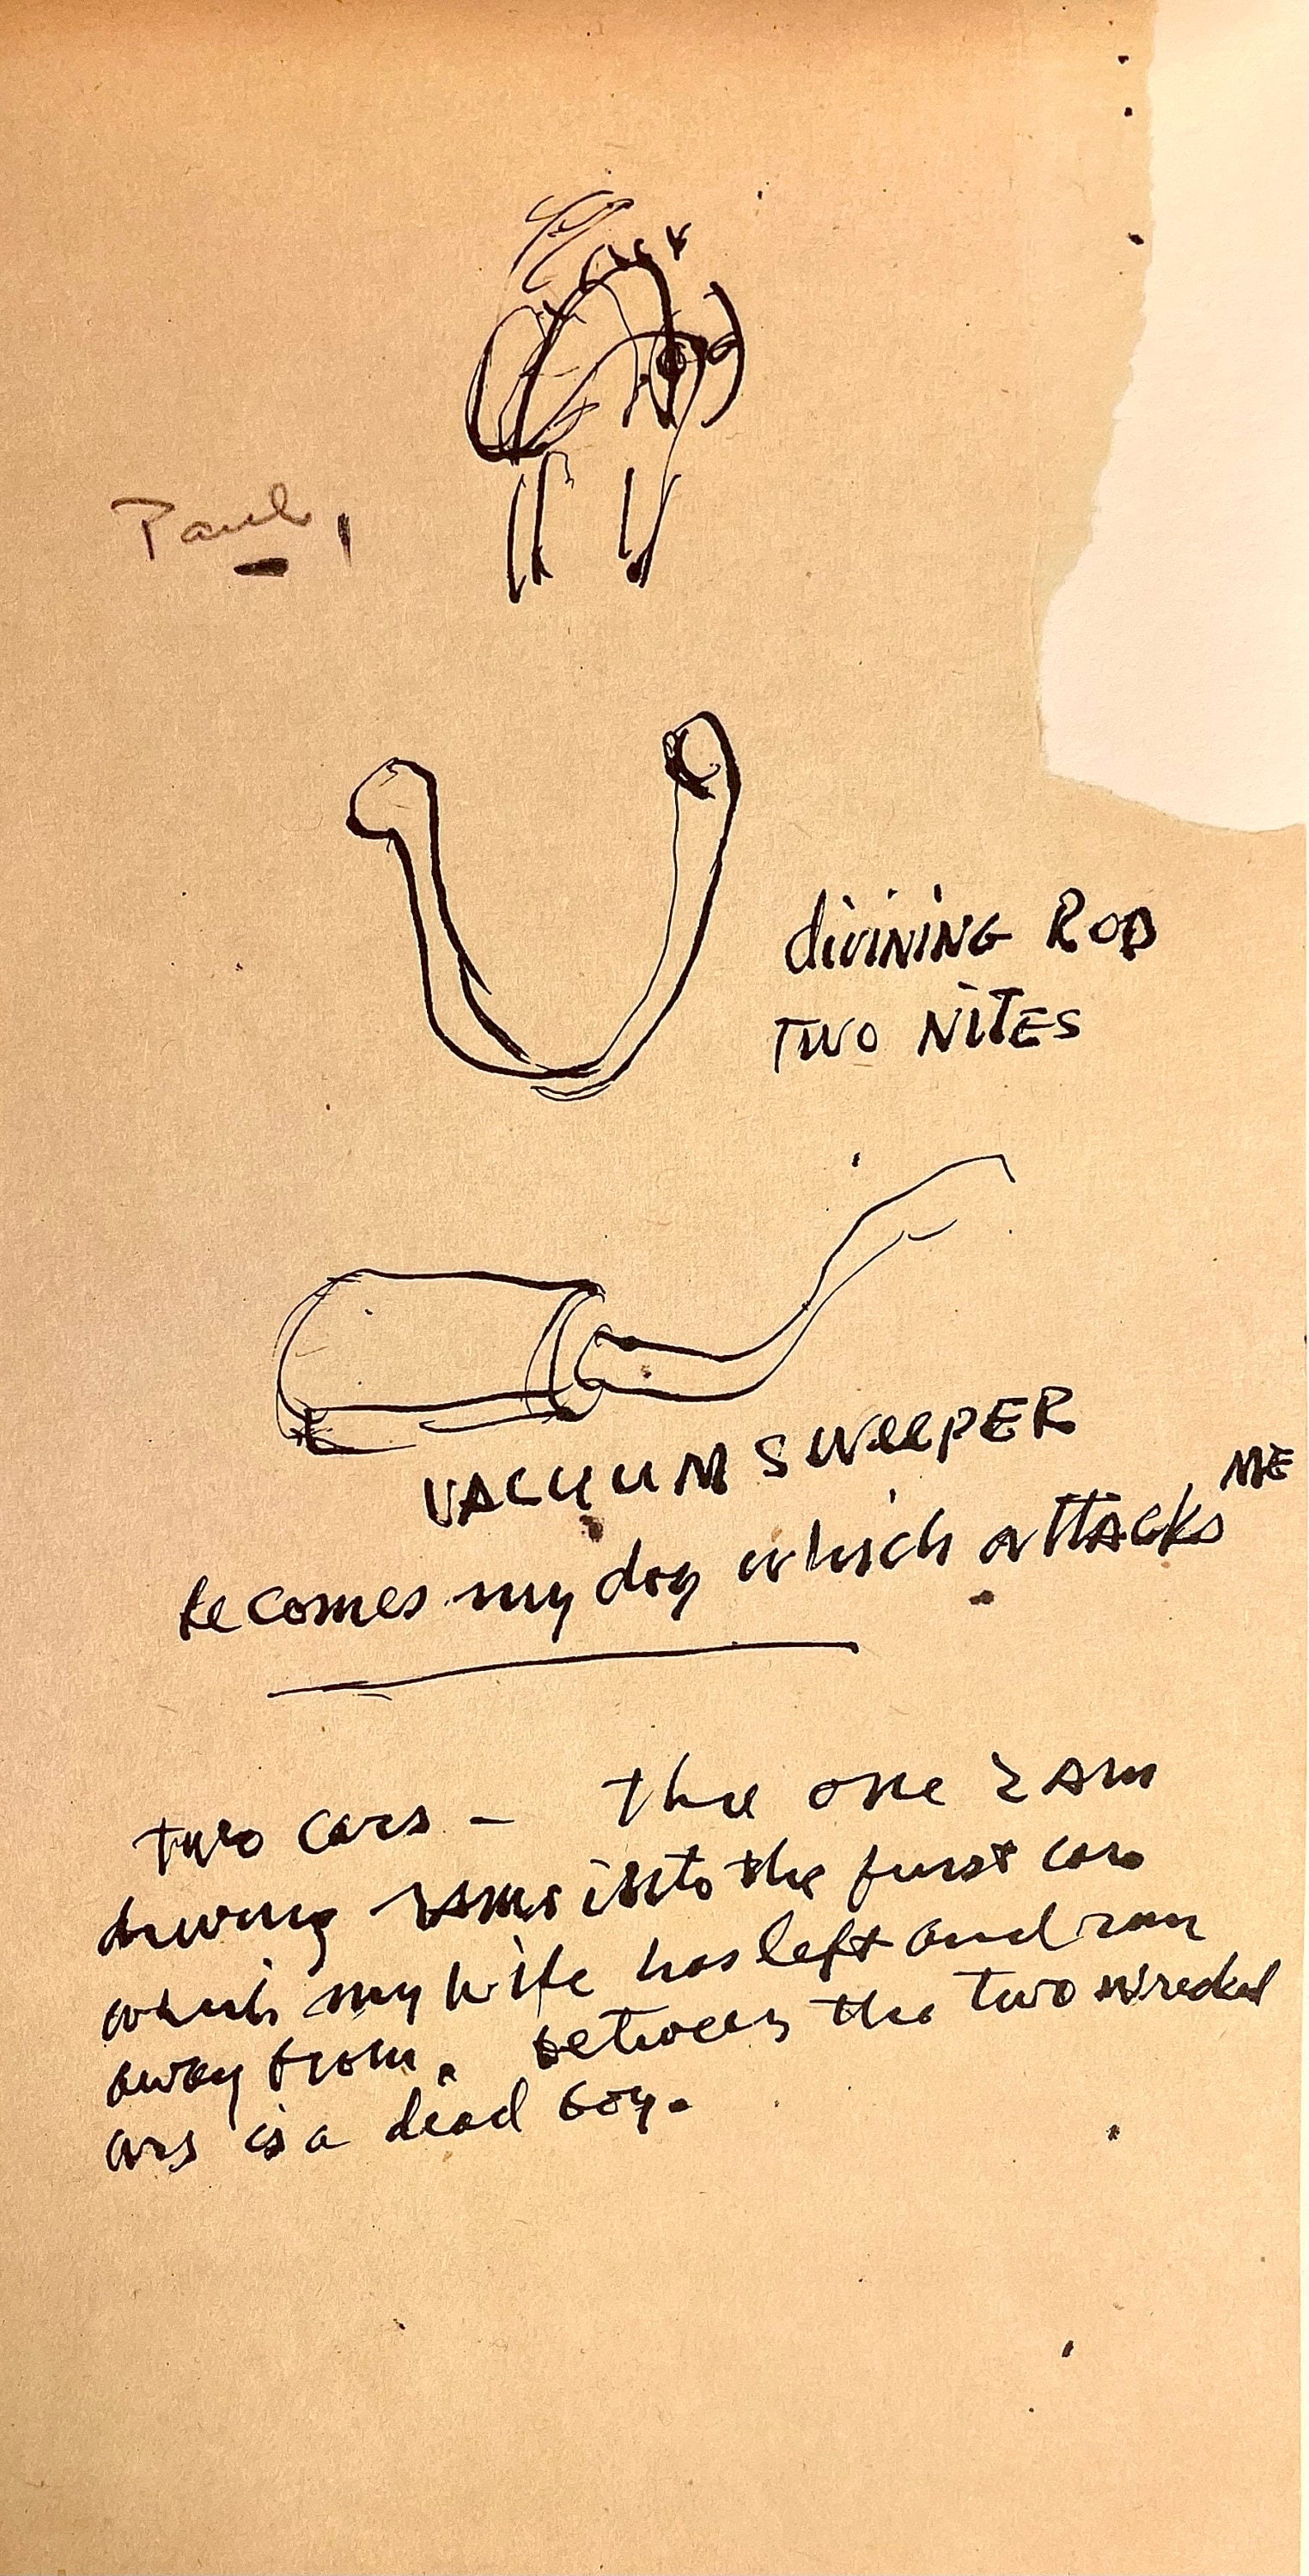 Paul,
divining Rod
TWO NITES
VACUUM SWeePER
becomes my dog which attacks ME
two cars - the one I am
driving rams into the first car
which my wife has left and ran
away from. between the two wrecked
cars is a dead boy.